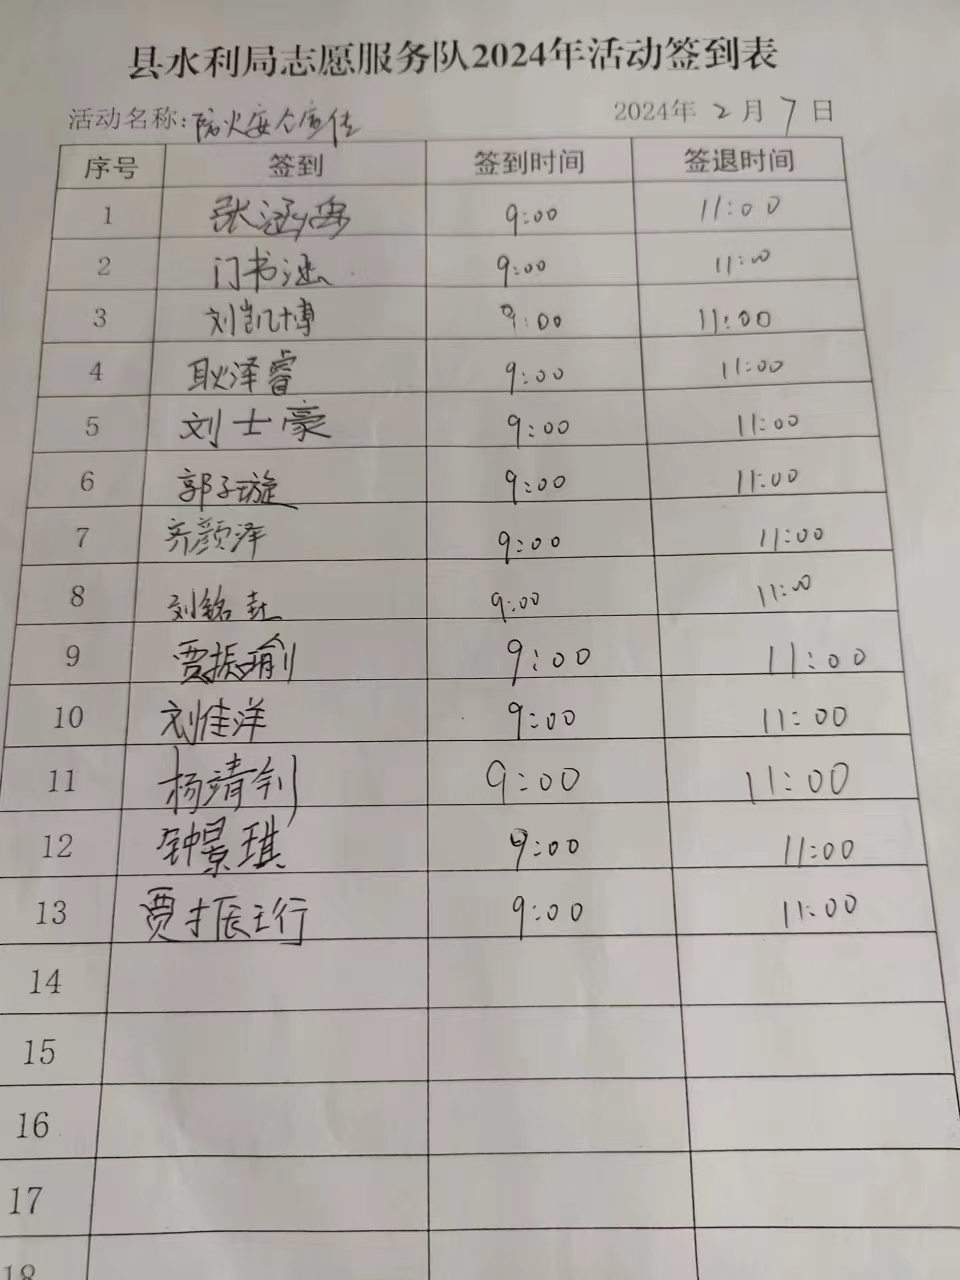 县水利局志愿服务队2024年活动签到表
活动名称:防火安全宣传 2024年2月7日
序号 签到 签到时间 签退时间
1 张涵 9:00 11:00
2 门书涵 9:00 11:00
3 刘凯博 9:00 11:00
4 耿泽睿 9:00 11:00
5 刘士豪 9:00 11:00
6 郭子璇 9:00 11:00
7 齐颜泽 9:00 11:00
8 刘铭 9:00 11:00
9 贾振瑜 9:00 11:00
10 刘佳洋 9:00 11:00
11 杨靖 9:00 11:00
12 钟景琪 9:00 11:00
13 贾振珩 9:00 11:00
14
15
16
17
18